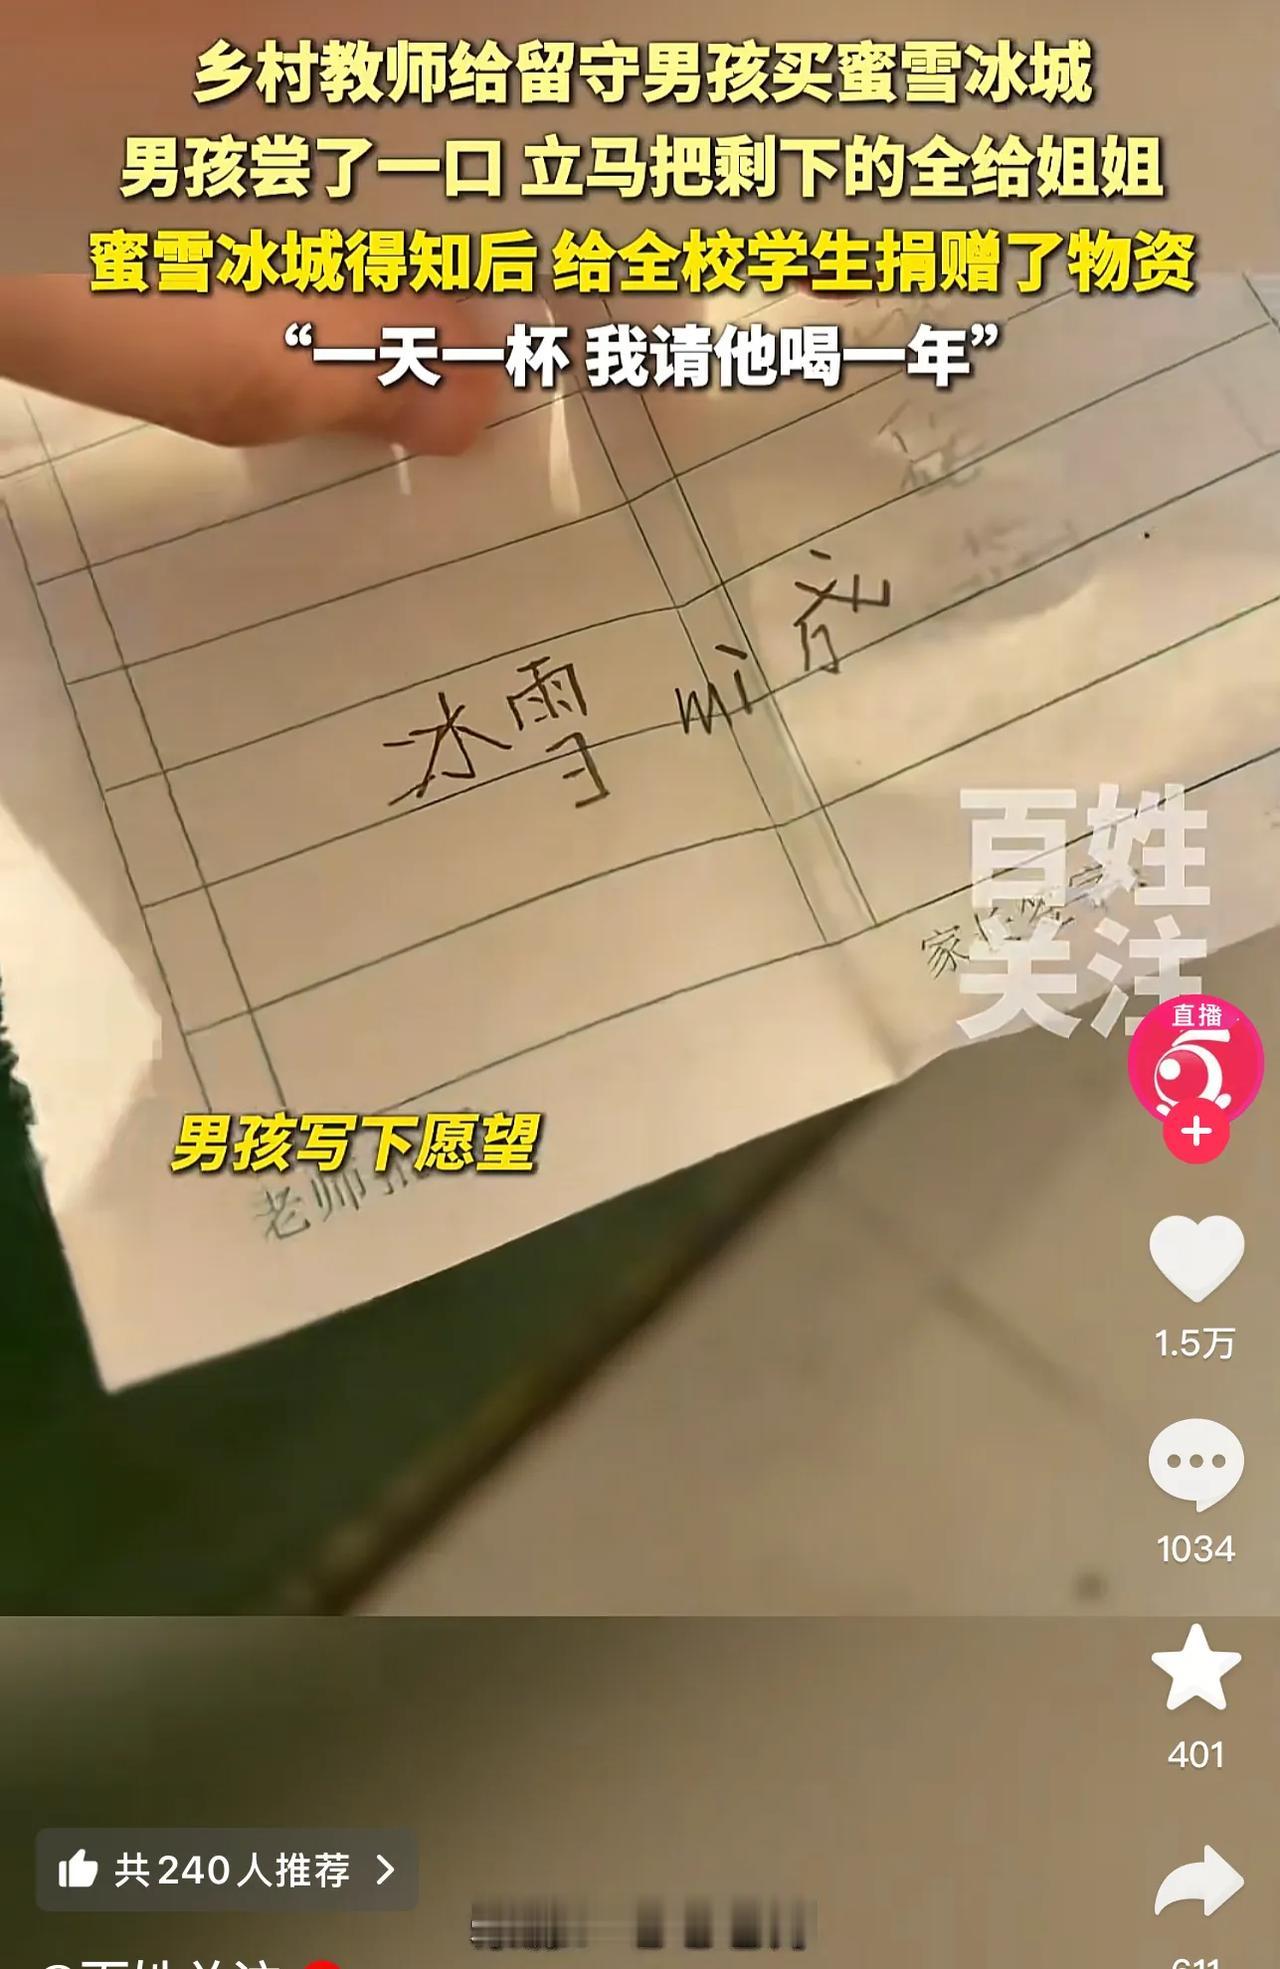 乡村教师给留守男孩买蜜雪冰城
男孩尝了一口 立马把剩下的全给姐姐
蜜雪冰城得知后 给全校学生捐赠了物资
“一天一杯 我请他喝一年”
冰雪 mì
百姓
关注
家长
直播
男孩写下愿望
老师
1.5万
1034
401
共240人推荐
@百姓关注
611